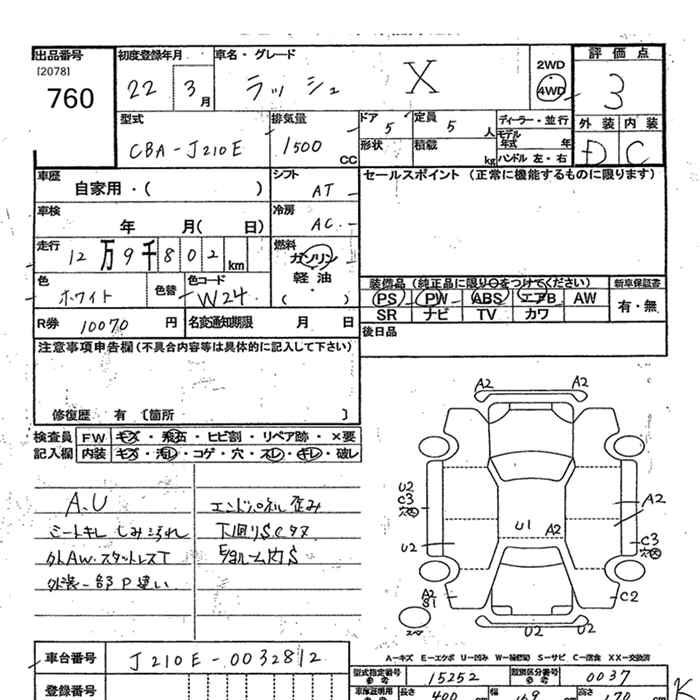 出品番号
[2078]
760
初度登録年月
22 3月
車名・グレード
ラッシュ X
2WD
4WD
評価点
3
外装 内装
D C
型式
CBA-J210E
排気量
1500 CC
ドア
5
定員
5 人
ディーラー・並行
モデル年式 年
形状
積載 kg
ハンドル 左・右
車歴
自家用・( )
シフト
AT
セールスポイント (正常に機能するものに限ります)
車検
年 月( 日)
冷房
AC
走行
12万9千802km
燃料
ガソリン
軽油
( )
色
ホワイト
色替
色コード
W24
装備品 (純正品に限り○をつけてください)
新車保証書
PS PW ABS エアB AW
有・無
SR ナビ TV カワ
R券 10070 円
名変通知期限 月 日
後日品
注意事項申告欄 (不具合内容等は具体的に記入して下さい)
修復歴 有 〔箇所 〕
検査員記入欄
FW キズ・飛石・ヒビ割・リペア跡・×要
内装 キズ・汚レ・コゲ・穴・スレ・キレ・破レ
A.U
シートキレ しみ汚れ
外AW.スタットレスT
外装一部P違い
エンドパネル歪み
下回りSCタヌ
A2 A2
U2
C3
U2
U1
A2
A2
C3
A2
S1
C2
U2 U2
A-キズ E-エクボ U-凹み W-補修跡 S-サビ C-腐食 XX-交換済
車台番号
J210E-0032812
登録番号
型式指定番号 15252
類別区分番号 0037
長さ 幅 高さ